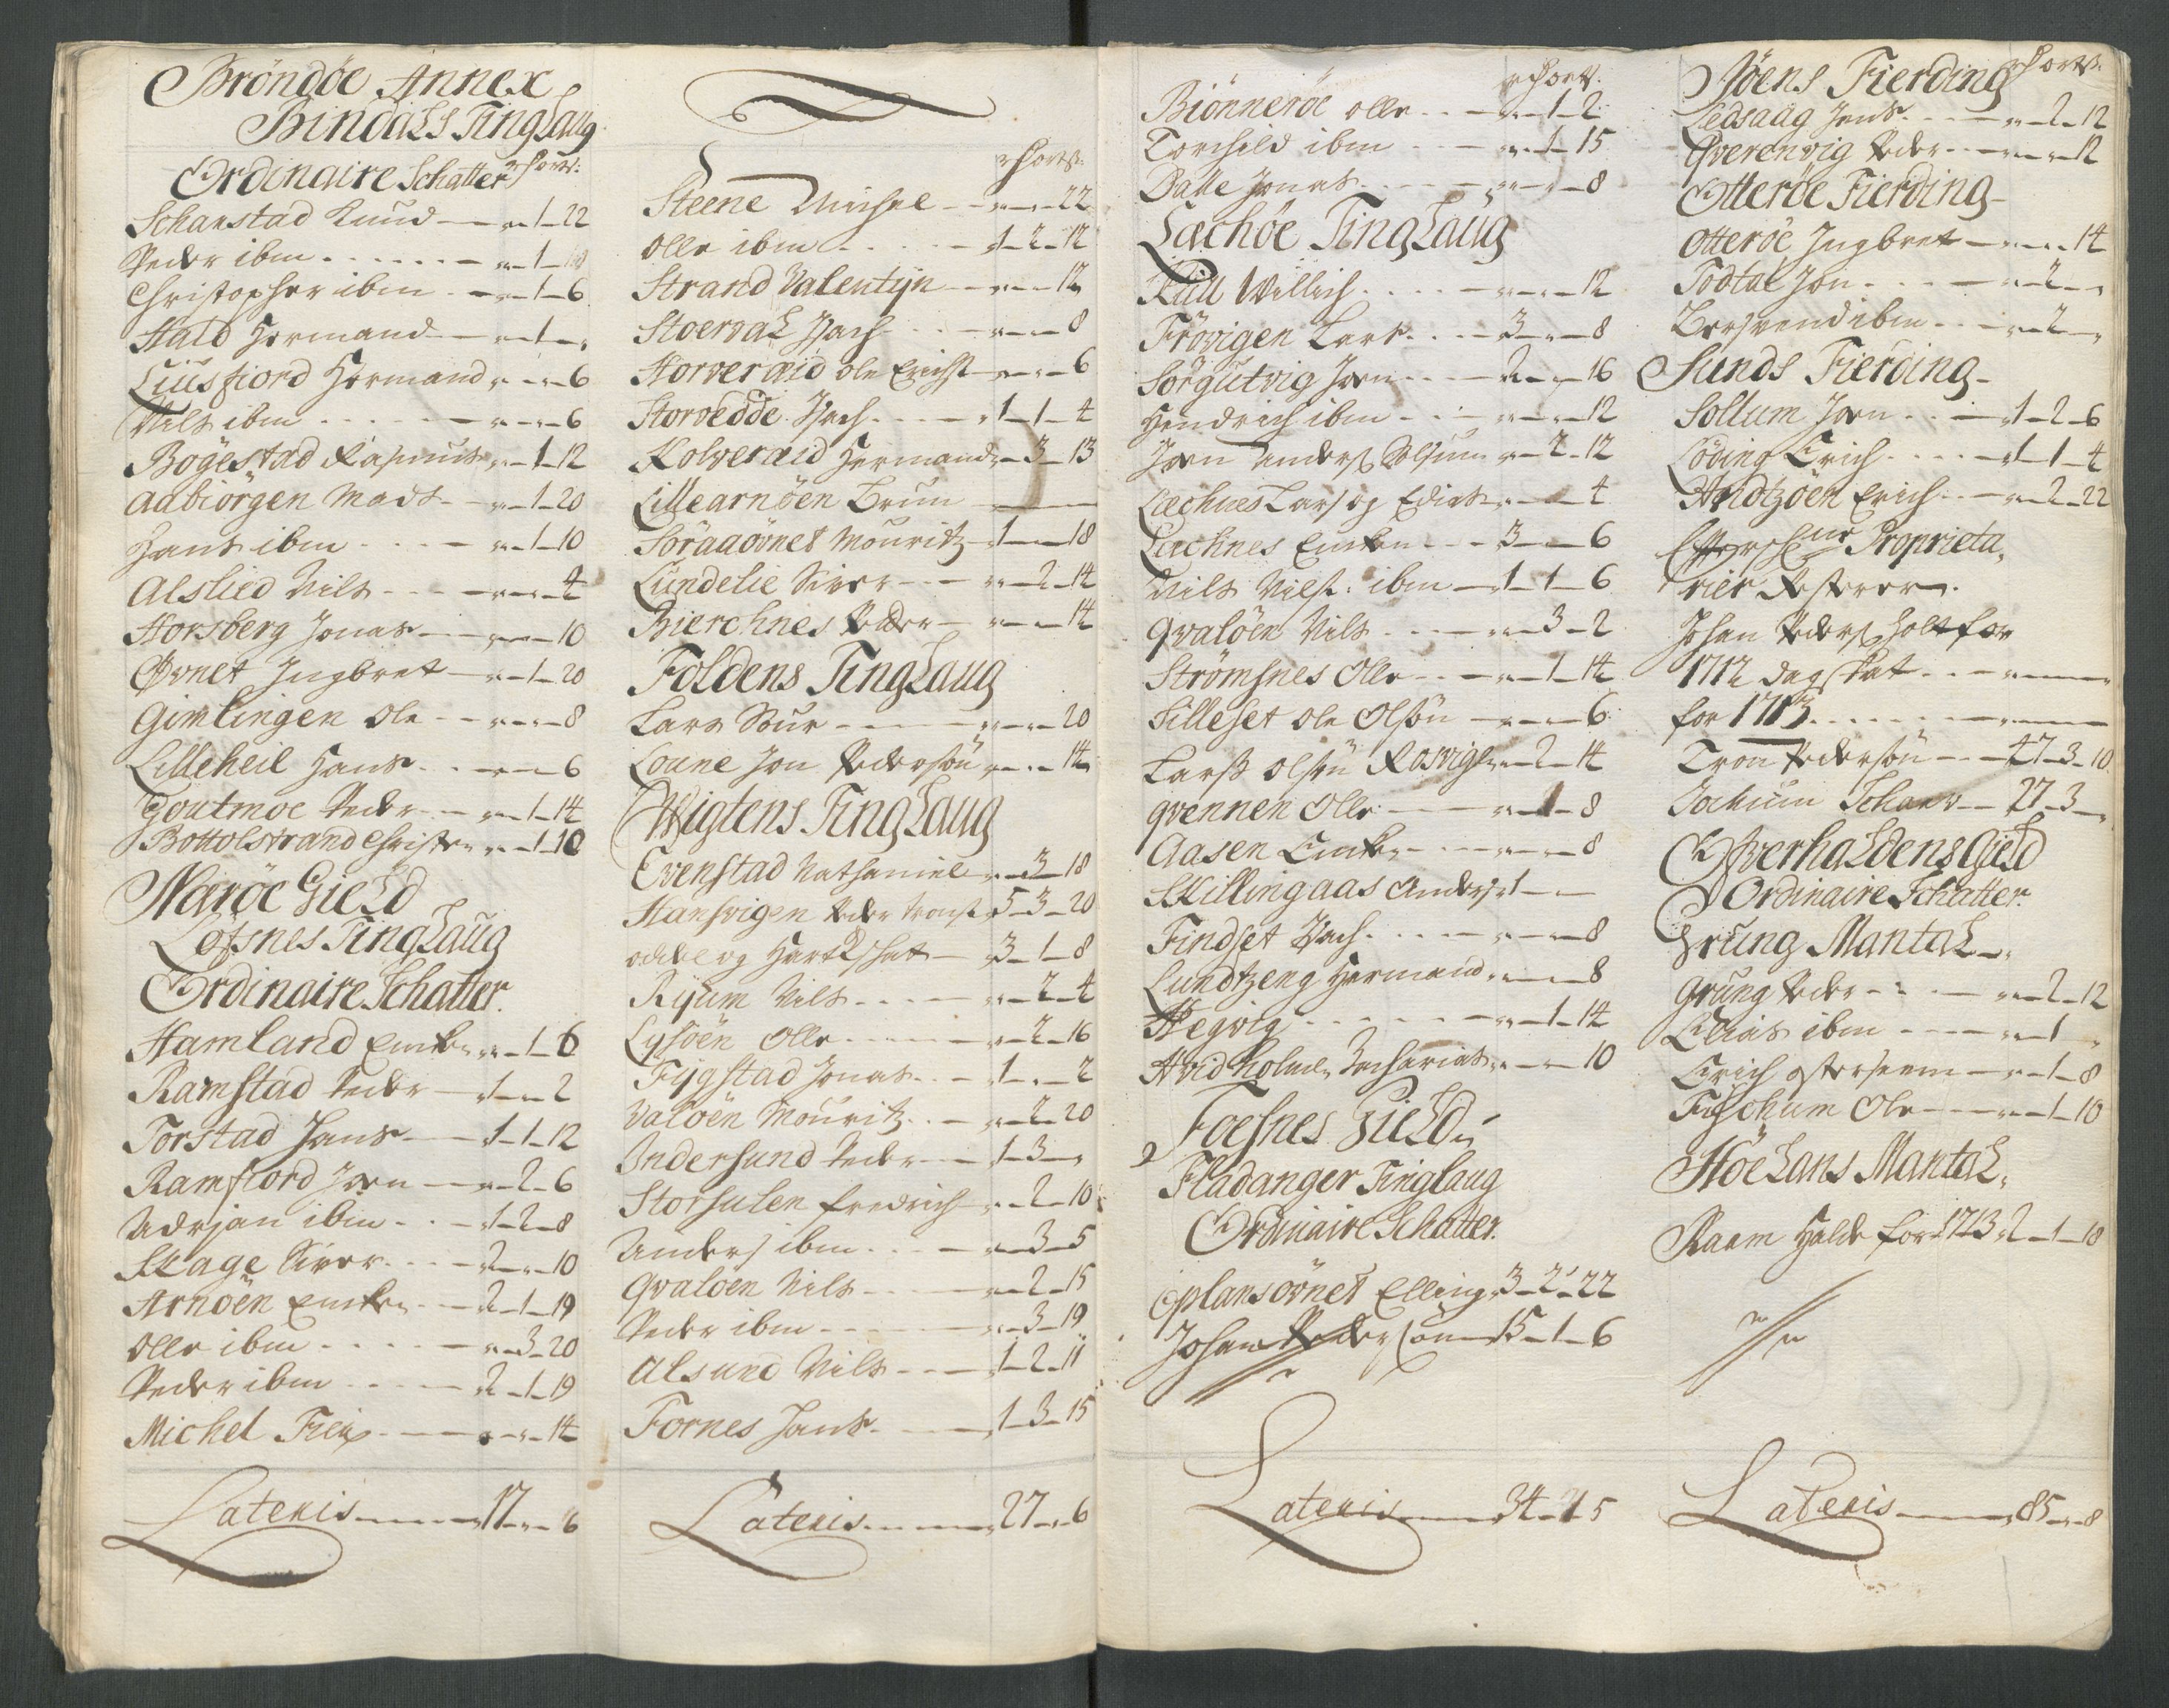 Bröndöe Annex
Bindals TingLaug
Ordinaire Schatter
Schanstad Knud — „ — 1 — 22
Peder ibm . . . . . „ — 1 —
Christopher ibm . . „ — 1 — 6
Hald Hermand — „ — 1 — „
Liusfiord Hermand „ — „ — 6
Nils ibm . . . . „ — „ — 6
Bögestad Rasmus „ — 1 — 12
Aabiörgen Mads — „ — 1 — 20
Hans ibm . . . „ — 1 — 10
Alslied Nils . . . „ — „ — 4
Horsberg Jonas — „ — „ — 10
Øvnet Ingbret — „ — 1 — 20
Gimlingen Ole — „ — „ — 8
Lilleheil Hans . . „ — „ — 6
Goutmoe Peder — „ — 1 — 14
Bottolstrand Christen „ — 1 — 10
Næröe GieLd
Løfsnes TingLaug
Ordinaire Schatter.
Hamland Enken „ — 1 — 6
Ramstad Peder — 1 — „ — 2
Torstad Hans — 1 — 1 — 12
Ramfiord Joen — „ — 2 — 6
Adrjan ibm . . — 1 — 2 — 8
Skage Siver . . . 2 — „ — 10
Arnöen Enken — 2 — 1 — 19
Olle ibm . . . . „ — 3 — 20
Peder ibm . . . . 2 — 1 — 19
Michel Fiin — „ — „ — 14
Lateris — 17 — „ — 6
Steene Michel — „ — „ — 22
Olle ibm . . . . 1 — 2 — 12
Strand Valentijn — „ — „ — 12
Stoervah Isach . . . „ — „ — 8
Horveræid Ole Erichs. — „ — „ — 6
Storvedde Isach . . . . 1 — 1 — 4
Kolveræid Hermand „ — 3 — 13
Lillearnöen Brun
Söraaövnet Mouritz 1 — „ — 18
Lundelie Siver — „ — 2 — 14
Bierchnes Peder — „ — „ — 14
Foldens TingLaug
Lars Stur — „ — „ — 20
Loune Jon Pedersön „ — „ — 14
Wigtens TingLaug
Evenstad Nathaniel „ — 3 — 18
Hansvigen Peder Tronst 5 — 3 — 20
3 — 1 — 8
Rijum Nils . . . . „ — 2 — 4
Lysöen Olle . . . . „ — 2 — 16
Fijgstad Jonas . . . 1 — „ — 2
Valöen Mouritz . . „ — 2 — 20
Indersund Peder — 1 — 3 — „
Storsulen Fredrich „ — 2 — 10
Anders ibm . . . „ — 3 — 5
Qvalöen Nils — „ — 2 — 15
Peder ibm — „ — 3 — 19
Alsund Nils — 1 — 2 — 11
Fornes Hans — 1 — 3 — 15
Lateris — 27 — „ — 6
Biönneröe Olle . . — „ — 1 — 2
Torchild ibm . . — „ — 1 — 15
Dalle Jonas . . — „ — „ — 8
Læchöe TingLaug
Kiill Willich . . . „ — „ — 12
Frövigen Lars . . 3 — „ — 8
Sörgutvig Joen . . 2 — „ — 16
Hendrich ibm . . „ — „ — 12
Joen Anders „ — 2 — 12
Lechnes Lars og „ — „ — 4
Lechnes Enken . . 3 — „ — 6
Nils Niels. ibm — 1 — 1 — 6
Qvalöen Nils . . . „ — 3 — 2
Strömsnes Olle . . „ — 1 — 14
Silleset Ole Olsön — „ — „ — 6
Larss Olsön Rosvigen „ — 2 — 14
Qvennen Olle — „ — 1 — 8
Aasen Enken — „ — „ — 8
Skillingaas Anders 1 — „
Findset Isach . . . „ — „ — 8
Lundtzeng Hermand „ — „ — 8
Hegvig . . . . . „ — 1 — 14
Hvidholmen Zacharias „ — „ — 10
Foesnes GieLd
Fladanger Tinglaug
Ordinaire Schatter.
Oplansövnet Elling 3 — 2 — 22
Johan Pedersön — 15 — 1 — 6
Lateris — 34 — 1 5
Jöens Fierding
Ledsaag Jens . . . — „ — 2 — 12
Qverenvig Peder . . — „ — „ — 12
Otteröe Fierding
Otteröe Ingbret — „ — „ — 14
Todtal Jon . . . — „ — 2 — „
Bersvend ibm . . „ — 2 — „
Sunds Fierding
Sollum Joen . . — 1 — 2 — 6
Löding Erich . . . . 1 — 1 — 4
Handtzöen Erich . . — „ — 2 — 22
Proprieta,
rier Resterer.
Johan Peders Holt for
1712 dagskat
for 1713
Tron Pedersön — 47 — 3 — 10
Jochum Schaar — 27 — 3 — „
Ofverhaldens GieLd
Ordinaire Schatter.
Grung MantaL
Grung Peder . . . „ — 2 — 12
Elias ibm — „ — 1 „
Erich — „ — 1 — 8
Fischum Ole — „ — 1 — 10
HöeLans MantaL
Raam Halde for 1713 2 — 1 — 18
Lateris — 85 — „ — 8